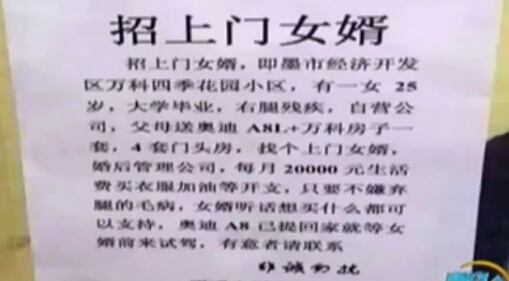 招上门女婿
招上门女婿，即墨市经济开发
区万科四季花园小区，有一女 25
岁，大学毕业，右腿残疾，自营公
司，父母送奥迪 A8L+万科房子一
套，4 套门头房，找个上门女婿，
婚后管理公司，每月 20000 元生活
费买衣服加油等开支，只要不嫌弃
腿的毛病，女婿听话想买什么都可
以支持，奥迪 A8 已提回家就等女
婿前来试驾，有意者请联系
非诚勿扰